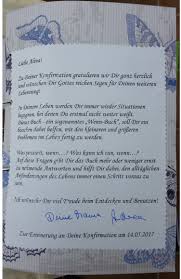 Liebe Alina!
Zu Deiner Konfirmation gratulieren wir Dir ganz herzlich
und wünschen Dir Gottes reichen Segen für Deinen weiteren
Lebensweg!
In Deinem Leben werden Dir immer wieder Situationen
begegnen, bei denen Du erstmal nicht weiter weißt.
Dieses Buch - ein sogenanntes „Wenn-Buch", soll Dir ein
bisschen dabei helfen, mit den kleineren und größeren
Problemen im Leben fertig zu werden.
Was passiert, wenn...? Was kann ich tun, wenn...?
Auf diese Fragen gibt Dir das Buch mehr oder weniger ernst
zu nehmende Antworten und hilft Dir dabei, den alltäglichen
Anforderungen des Lebens immer einen Schritt voraus zu
sein.
Ich wünsche Dir viel Freude beim Entdecken und Benutzen!
Deine
Zur Erinnerung an Deine Konfirmation am 14.05.2017